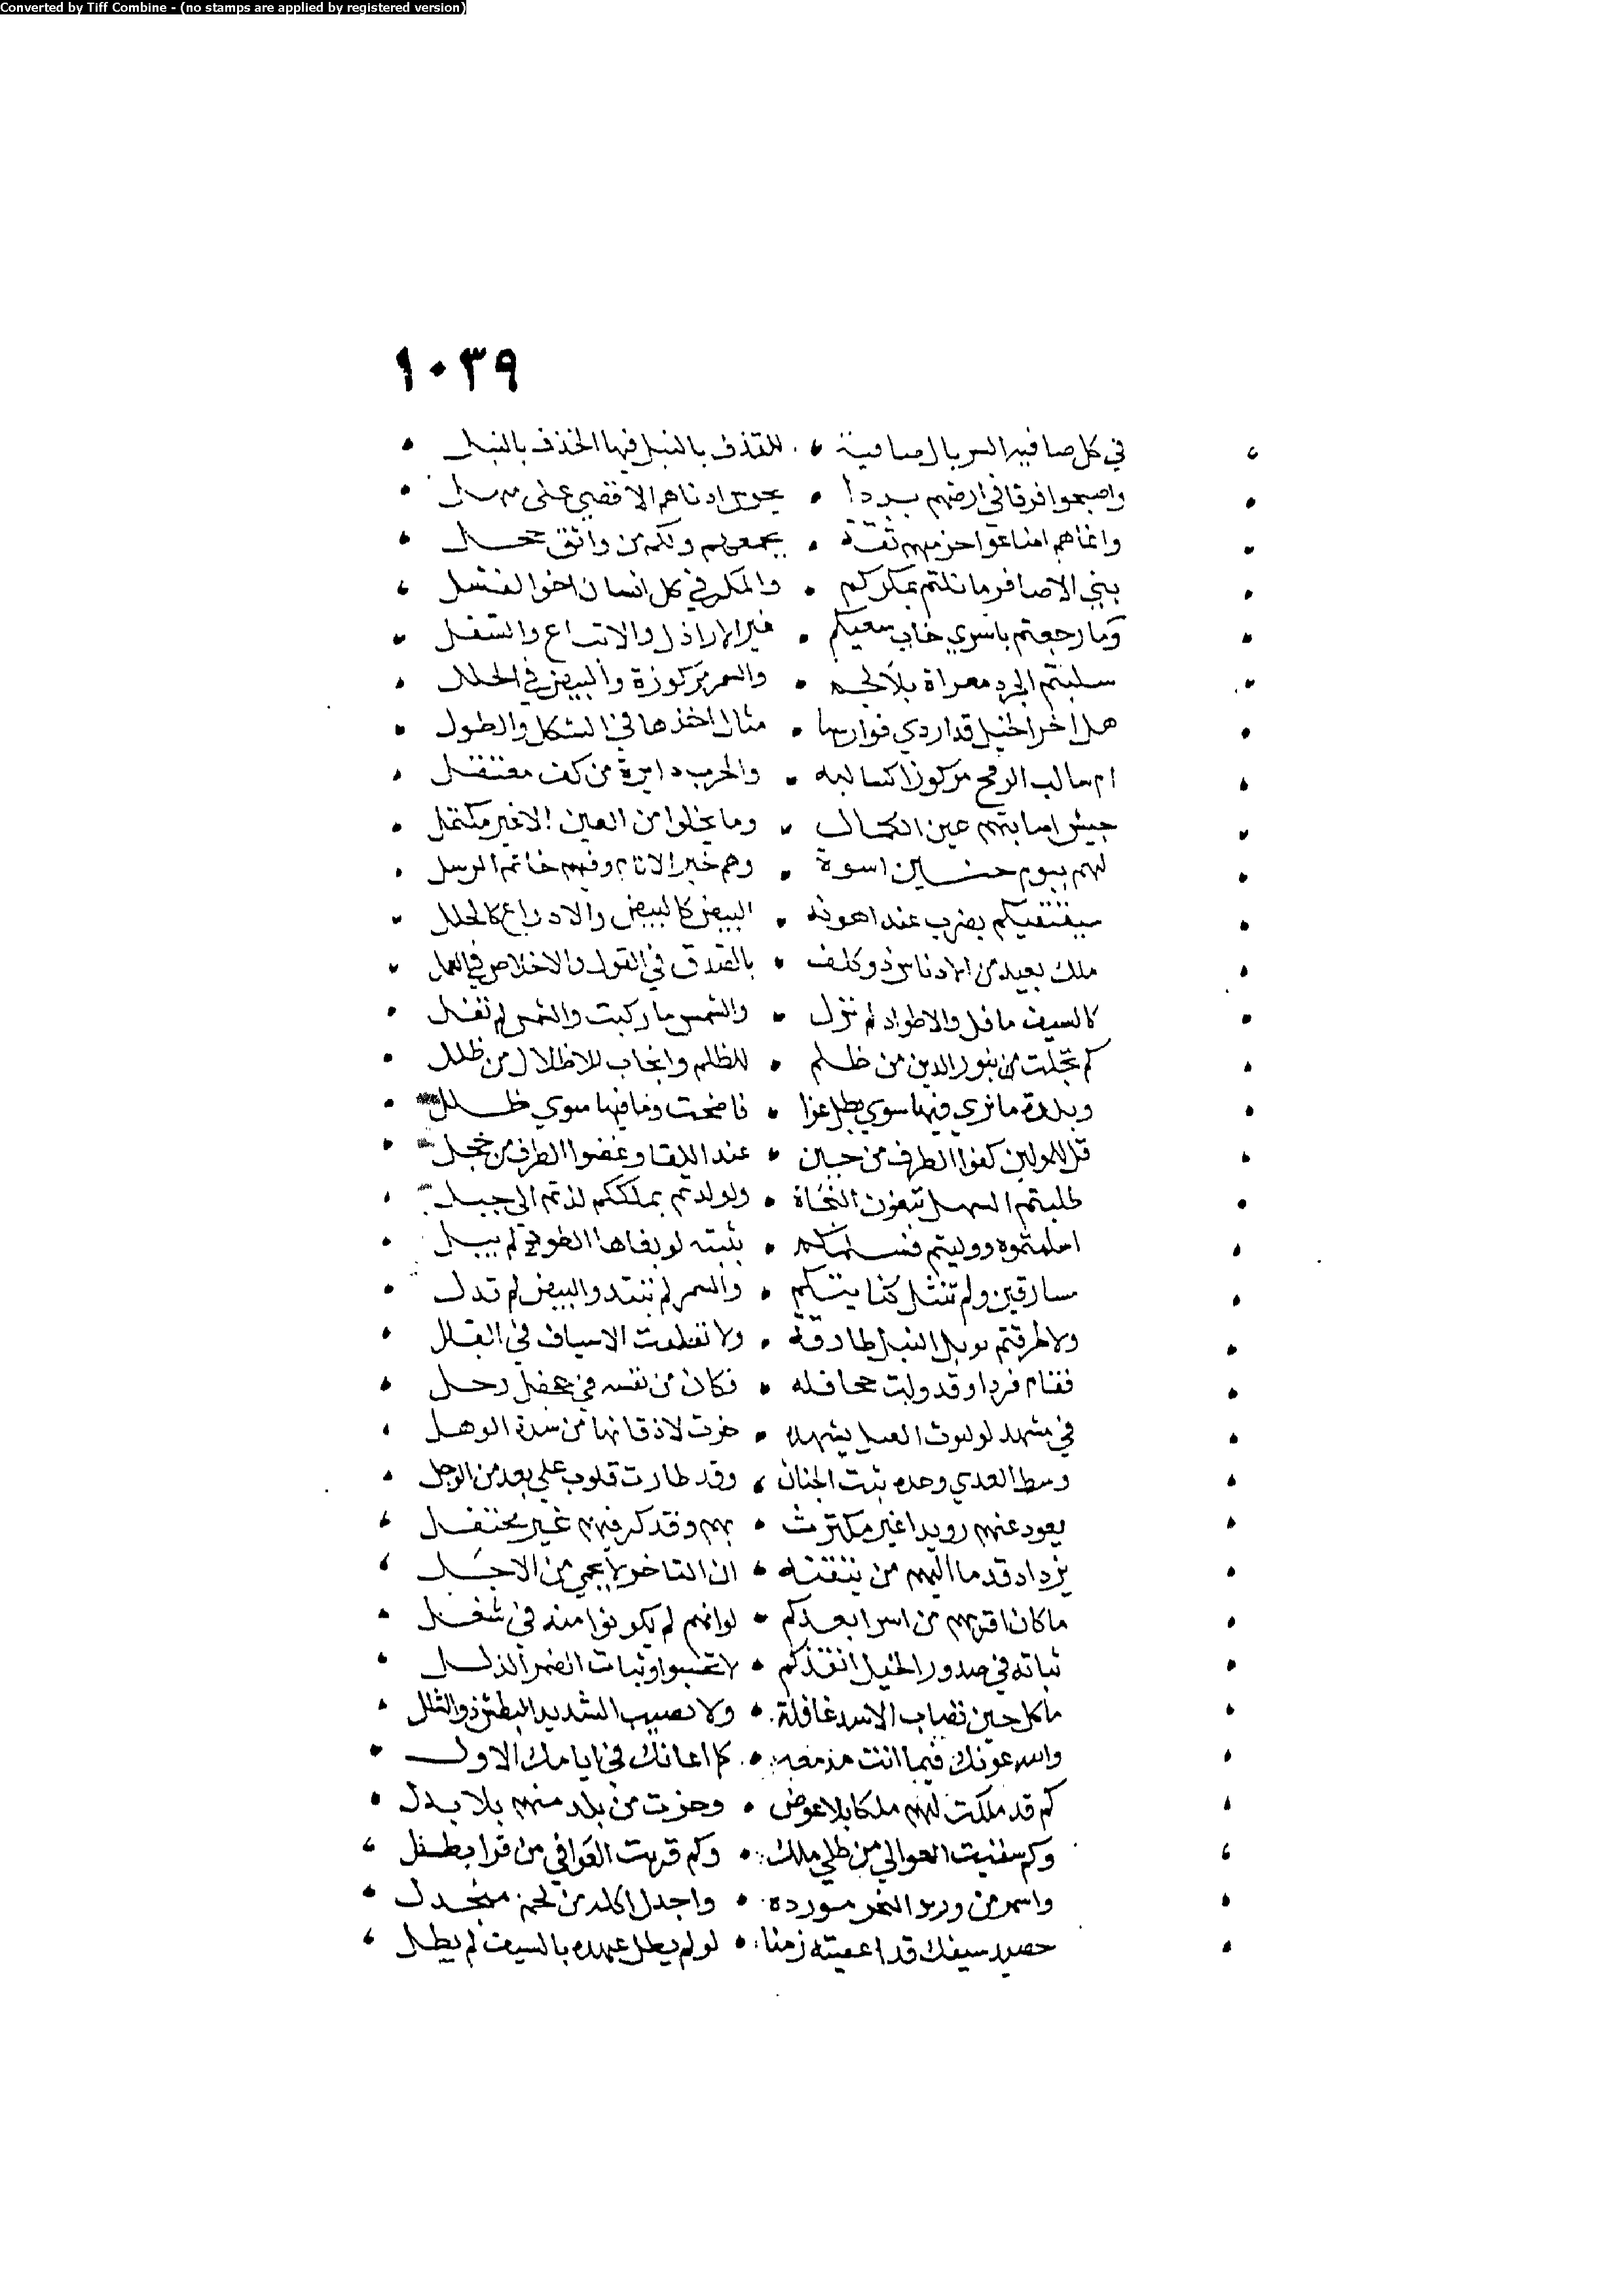 Converted by Tiff Combine - (no stamps are applied by registered version)
١٠٣٩
في كل صافيه السربال صافية • للقذف بالنبل فيها الخذف بالنبل
واصبحوا فرقا في ارضهم بددا • يحوس ادناهم الاقصي على مهل
وانماهم اضاعوا حزمهم ثقة • بجمعهم ولكم من واثق خجل
بني الاصافر ما نلتم بمكركم • والمكر في كل انسان اخو الفشل
وما رجعتم باسري خاب سعيكم • غير الاراذل والاتباع والسفل
سلبتم الجرد معراة بلا لجم • والسمر مركوزة والبيض في الخلل
هل اخر الخيل قد اردي فوارسها • مثال اخذها في الشكل والطول
ام سالب الرمح مركوزا كسالبه • والحرب دايرة من كف معتقل
جيش اصابتهم عين الكمال • وما يخلوا من العين الا غير مكتمل
لهم بيوم حنين اسوة • وهم خير الانام وفيهم خاتم الرسل
سيقتقيكم بضرب عند اهونه • البيض كالبيض والادراع كالحلل
ملك بعيد من الادناس ذو كلف • بالصدق في القول والاخلاص في العمل
كالسيف ما فل والاطواد لم تزل • والشمس ما ركبت والشمس لم تفل
كم تجلت من بنور الدين من ظلم • للظلم وانجاب للاظلال من ظلل
وبلدة ما تري فيها سوي بطل غزا • فاضحت وما فيها سوي طلل
قل للمولين كفوا الطرف من جبن • عند اللقا وغضوا الطرف من خجل
طلبتم السهل تبغون النجاة • ولو لذتم بملككم لذتم الي جبل
اسلمتموه ووليتم فسلمكم • بثبته لو بغاها الطود لم يبل
مسارقين ولم تنثل كنايتكم • والسمر لم تبتد والبيض لم تدل
ولا طرقتم بوبل النبل طارقة • ولا تغلغلت الاسياف في القلل
فقام فردا وقد ولت جحافله • فكان من نفسه في جحفل زجل
في مشهد لو ليوث الغيل يشهده • خرت لاذقانها من شدة الوهل
وسط العدي وحده ثبت الجنان • وقد طارت قلوب علي بعد من الوجل
يعود عنهم رويدا غير مكترث • بهم وقد كر فيهم غير محتفل
يزداد قدما اليهم من تيقنه • ان التاخر لا يحمي من الاجل
ما كان اقربهم من اسر ابعدكم • لو انهم لم يكونوا منه في شغل
ثباته في صدور الخيل انقذكم • لا تحسبوا وثبات الضمر الذلل
ما كل حين تصاب الاسد غافلة • ولا يصيب الشديد البطش ذو الشلل
والله عونك فيما انت مزمعه • كما اعانك في ايامك الاول
كم قد ملكت لهم ملكا بلا عوض • وحزت من بلد منهم بلا بدل
وكم سقيت العوالي من طلي ملك • وكم قريت العوافي من قرا بطل
واسمر من وريد النحر مورده • واجدل اكله من لحم منجدل
حصيد سيفك قد اعفيته زمنا • لو لم يطل عهده بالسيف لم يطل